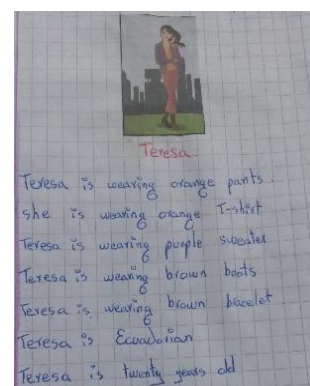 Teresa
Teresa is wearing orange pants.
she is wearing orange T-shirt
Teresa is wearing purple sweater
Teresa is wearing brown boots
Teresa is wearing brown bracelet
Teresa is Ecuadorian
Teresa is twenty years old